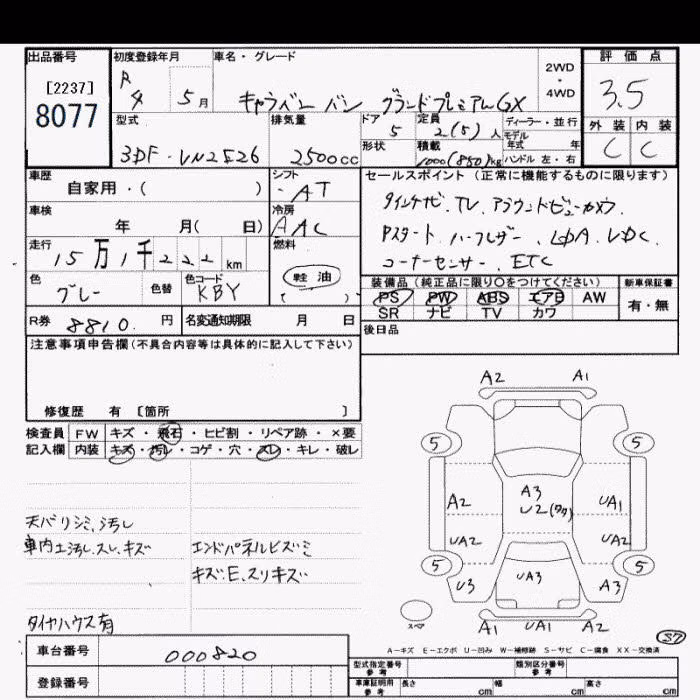 出品番号 初度登録年月 車名・グレード 評価点
[2237]
8077
R4 5月 キャラバン バン グランドプレミアムGX 2WD・4WD 3.5
型式 排気量 ドア 定員 ディーラー・並行 外装 内装
3DF-VN2E26 2500cc 5 2(5)人 モデル年式 年 C C
形状 積載 1000(850)kg ハンドル 左・右
車歴 シフト セールスポイント(正常に機能するものに限ります)
自家用・( ) AT
TV.アラウンドビューカメラ.
車検 冷房
年 月( 日) AAC
Pスタート.ハーフレザー.LDA.VDC.
走行 燃料
15万1千222km 軽油
コーナーセンサー.ETC
色 色替 色コード 装備品(純正品に限り○をつけてください) 新車保証書
グレー KBY PS PW ABS エアB AW 有・無
SR ナビ TV カワ
R券 8810.円 名変通知期限 月 日 後日品
注意事項申告欄(不具合内容等は具体的に記入して下さい)
修復歴 有 [箇所 ]
検査員 FW キズ・飛石・ヒビ割・リペア跡・×要
記入欄 内装 キズ・汚レ・コゲ・穴・スレ・キレ・破レ
天バリシミ、汚し
車内土汚し.スレ.キズ エンドパネルビズミ
キズ.E.スリキズ
タイヤハウス有
車台番号 000820
登録番号
A2 A1
5 5
A2 A3 UA1
U2(ワク)
UA2 UA2
5 5
U3 UA3 A3
スペア A1 UA1 A2
S7
A-キズ E-エクボ U-凹み W-補修跡 S-サビ C-腐食 XX-交換済
型式指定番号 参考 類別区分番号 参考
車庫証明用 参考 長さ cm 幅 cm 高さ cm